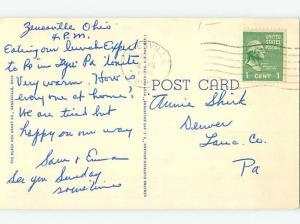 Zanesville Ohio
4 P.M.
Eating our lunch Expect
to be in Pa tonite
Very warm. How is
every one at home?
We are tired but
happy on our way
Sam + Emma
See you Sunday
sometime
POST CARD
UNITED STATES
POSTAGE
1 CENT 1
Annie Shirk
Denver
Lanc. Co.
Pa